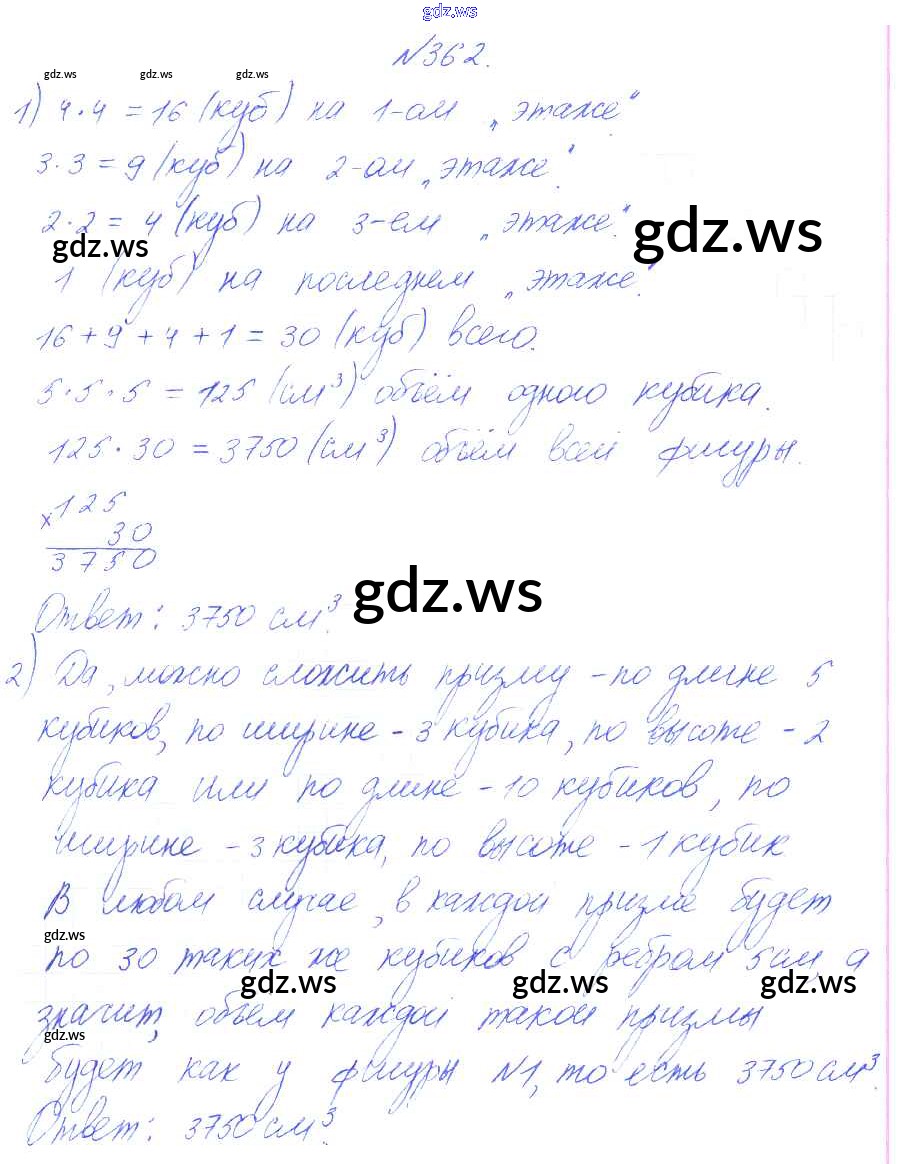 gdz.ws
№362.
gdz.ws gdz.ws gdz.ws
1) 4·4 = 16 (куб) на 1-ом „этаже“
3·3 = 9 (куб) на 2-ом „этаже“.
2·2 = 4 (куб) на 3-ем „этаже“.
gdz.ws gdz.ws
1 (куб) на последнем „этаже“.
16+9+4+1 = 30 (куб) всего.
5·5·5 = 125 (см³) объём одного кубика.
125·30 = 3750 (см³) объём всей фигуры.
×125
30
3750
gdz.ws
Ответ: 3750 см³.
2) Да, можно сложить призму - по длине 5
кубиков, по ширине - 3 кубика, по высоте - 2
кубика или по длине - 10 кубиков, по
ширине - 3 кубика, по высоте - 1 кубик
В любом случае, в каждой призме будет
gdz.ws
по 30 таких же кубиков с ребром 5см, а
gdz.ws gdz.ws gdz.ws
значит, объём каждой такой призмы
gdz.ws
будет как у фигуры №1, то есть 3750 см³.
Ответ: 3750 см³.